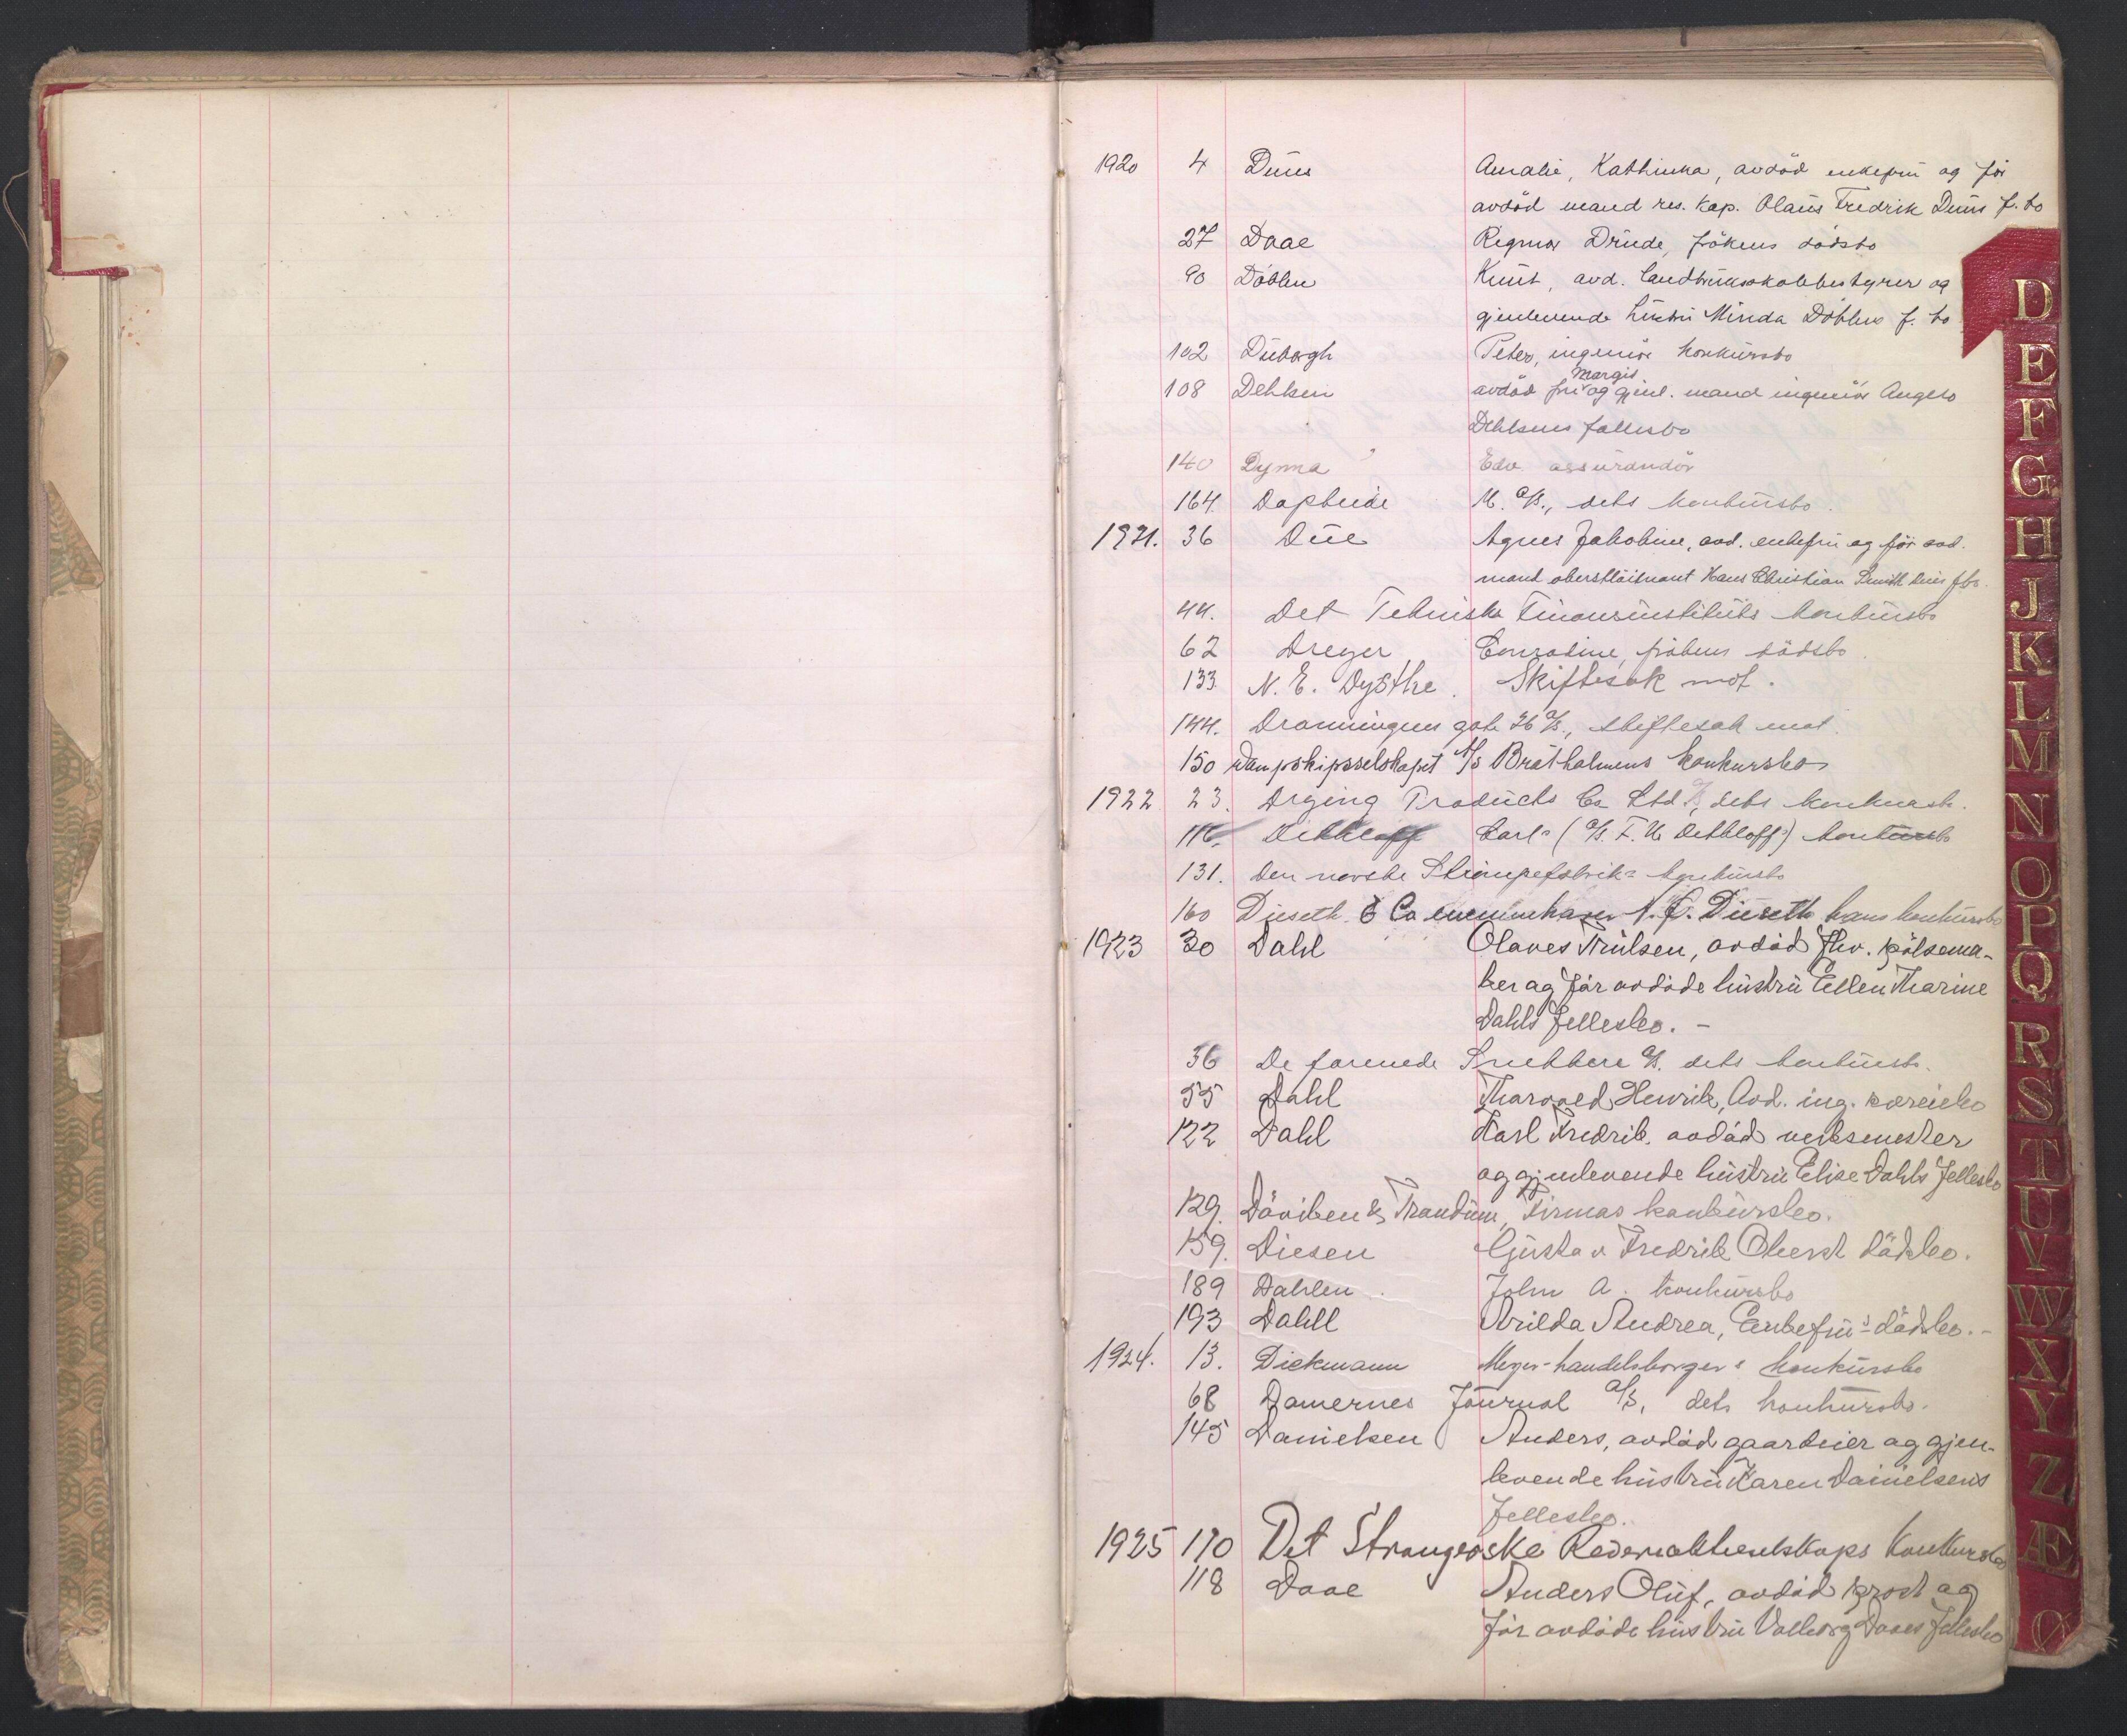 1920 4 Duus Amalie, Kathinka, avdöd enkefru og för
avdöd mand res. kap. Olaus Fredrik Duus f. bo
27 Daae Regmor Drude, frökens dödsbo
90 Döhlen Knut, avd. landbruksskolebestyrer og
gjenlevende hustru Minda Döhlens f. bo
102 Dübergh Peter, ingeniör konkursbo
Margit
108 Dehlsen avdöd fru og gjenl. mand ingeniör Angelo
Dehlsens fællesbo
140 Dynna Edv. assurandör
164. Daphnide M. A/S., dets konkursbo.
1921. 36 Due Agnes Jakobine, avd. enkefru og för avd.
mand oberstlöitnant Hans Christian Smith Dues fbo.
44. Det Tekniske Finansinstituts konkursbo
62 Dreyer Conradine, frökens dödsbo.
133. N. E. Dysthe. Skiftesak mot.
144. Dronningens gate 26 A/S., skiftesak mot.
150 Dampskipsselskapet A/S Bratholmens konkursbo
1922 23. Drying Products Co Ltd A/S, dets konkursb.
116. Dethloff Carl s (A/S. F. U. Dethloff s) konkursbo
131. Den norske Strömpefabriks konkursbo
160 Dieseth & Co eneindehaver N. C. Dieseth hans konkursbo
1923 30 Dahl Olaves Trulsen, avdöd fhv. pölsema-
ker og för avdöde hustru Ellen Marine
Dahls fellesbo. -
36 De forenede Snekkere A/S. dets konkursb.
55 Dahl Thorvald Henrik, Avd. ing.
122 Dahl Karl Fredrik, avdöd verksmester
og gjenlevende hustru Elise Dahls fellesbo
129. Döviken & Trandum, Firmas konkursbo.
159. Diesen Gustav Fredrik Oberst dödsbo.
189 Dahlen. John A. konkursbo
193 Dahll Arilda Andrea, Enkefru s dödsbo. -
1924. 13. Diekmann Meyer - handelsborgers konkursbo
68 Damernes Journal A/S, dets konkursbo.
145 Danielsen Anders, avdöd gaardeier og gjen-
levende hustru Karen Danielsens
fellesbo.
1925 110 Det Strangerske Rederiaktieselskaps Konkursbo
118 Daae Anders Oluf, avdöd prost og
för avdöde hustru Valborg Daaes fellesbo
D
E
F
G
H
J
K
L
M
N
O
P
Q
R
S
T
U
V
W
X
Y
Z
Æ
Ø